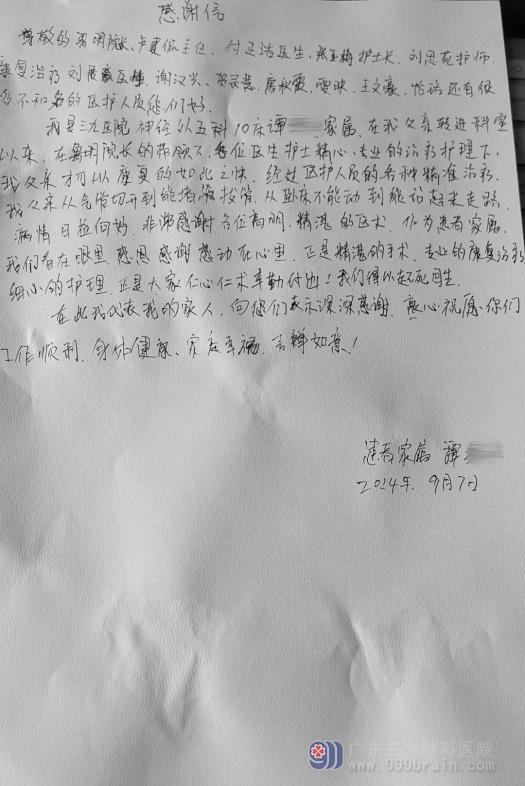 感谢信
尊敬的 明院长、卢 主任、付 医生、 护士长、刘思 护师
康复治疗刘 、谢汉兴、 、 、 、王文豪、 还有很
多不知名的医护人员您们好
我是三九医院神经外五科10床谭 家属,在我父亲转进科室
以来,在 明院长的带领下,各位医生护士精心、专业的治疗护理下,
我父亲才可以康复的如此之快,经过医护人员的各种精准治疗,
我父亲从气管切开到能堵管拔管,从卧床不能动到能 起来走路,
病情日益向好,非常感谢各位高明、精湛的医术,作为患者家属,
我们看在眼里,感恩感谢感动在心里,正是精湛的手术、专业的康复治疗
细心的护理,正是大家仁心仁术辛勤付出!我们得以起死回生
在此我代表我的家人,向您们表示深深感谢,衷心祝愿你们
工作顺利、身体健康、家庭幸福、吉祥如意!
患者家属 谭
2024年 9月7日
广东三九脑科医院
www.999brain.com